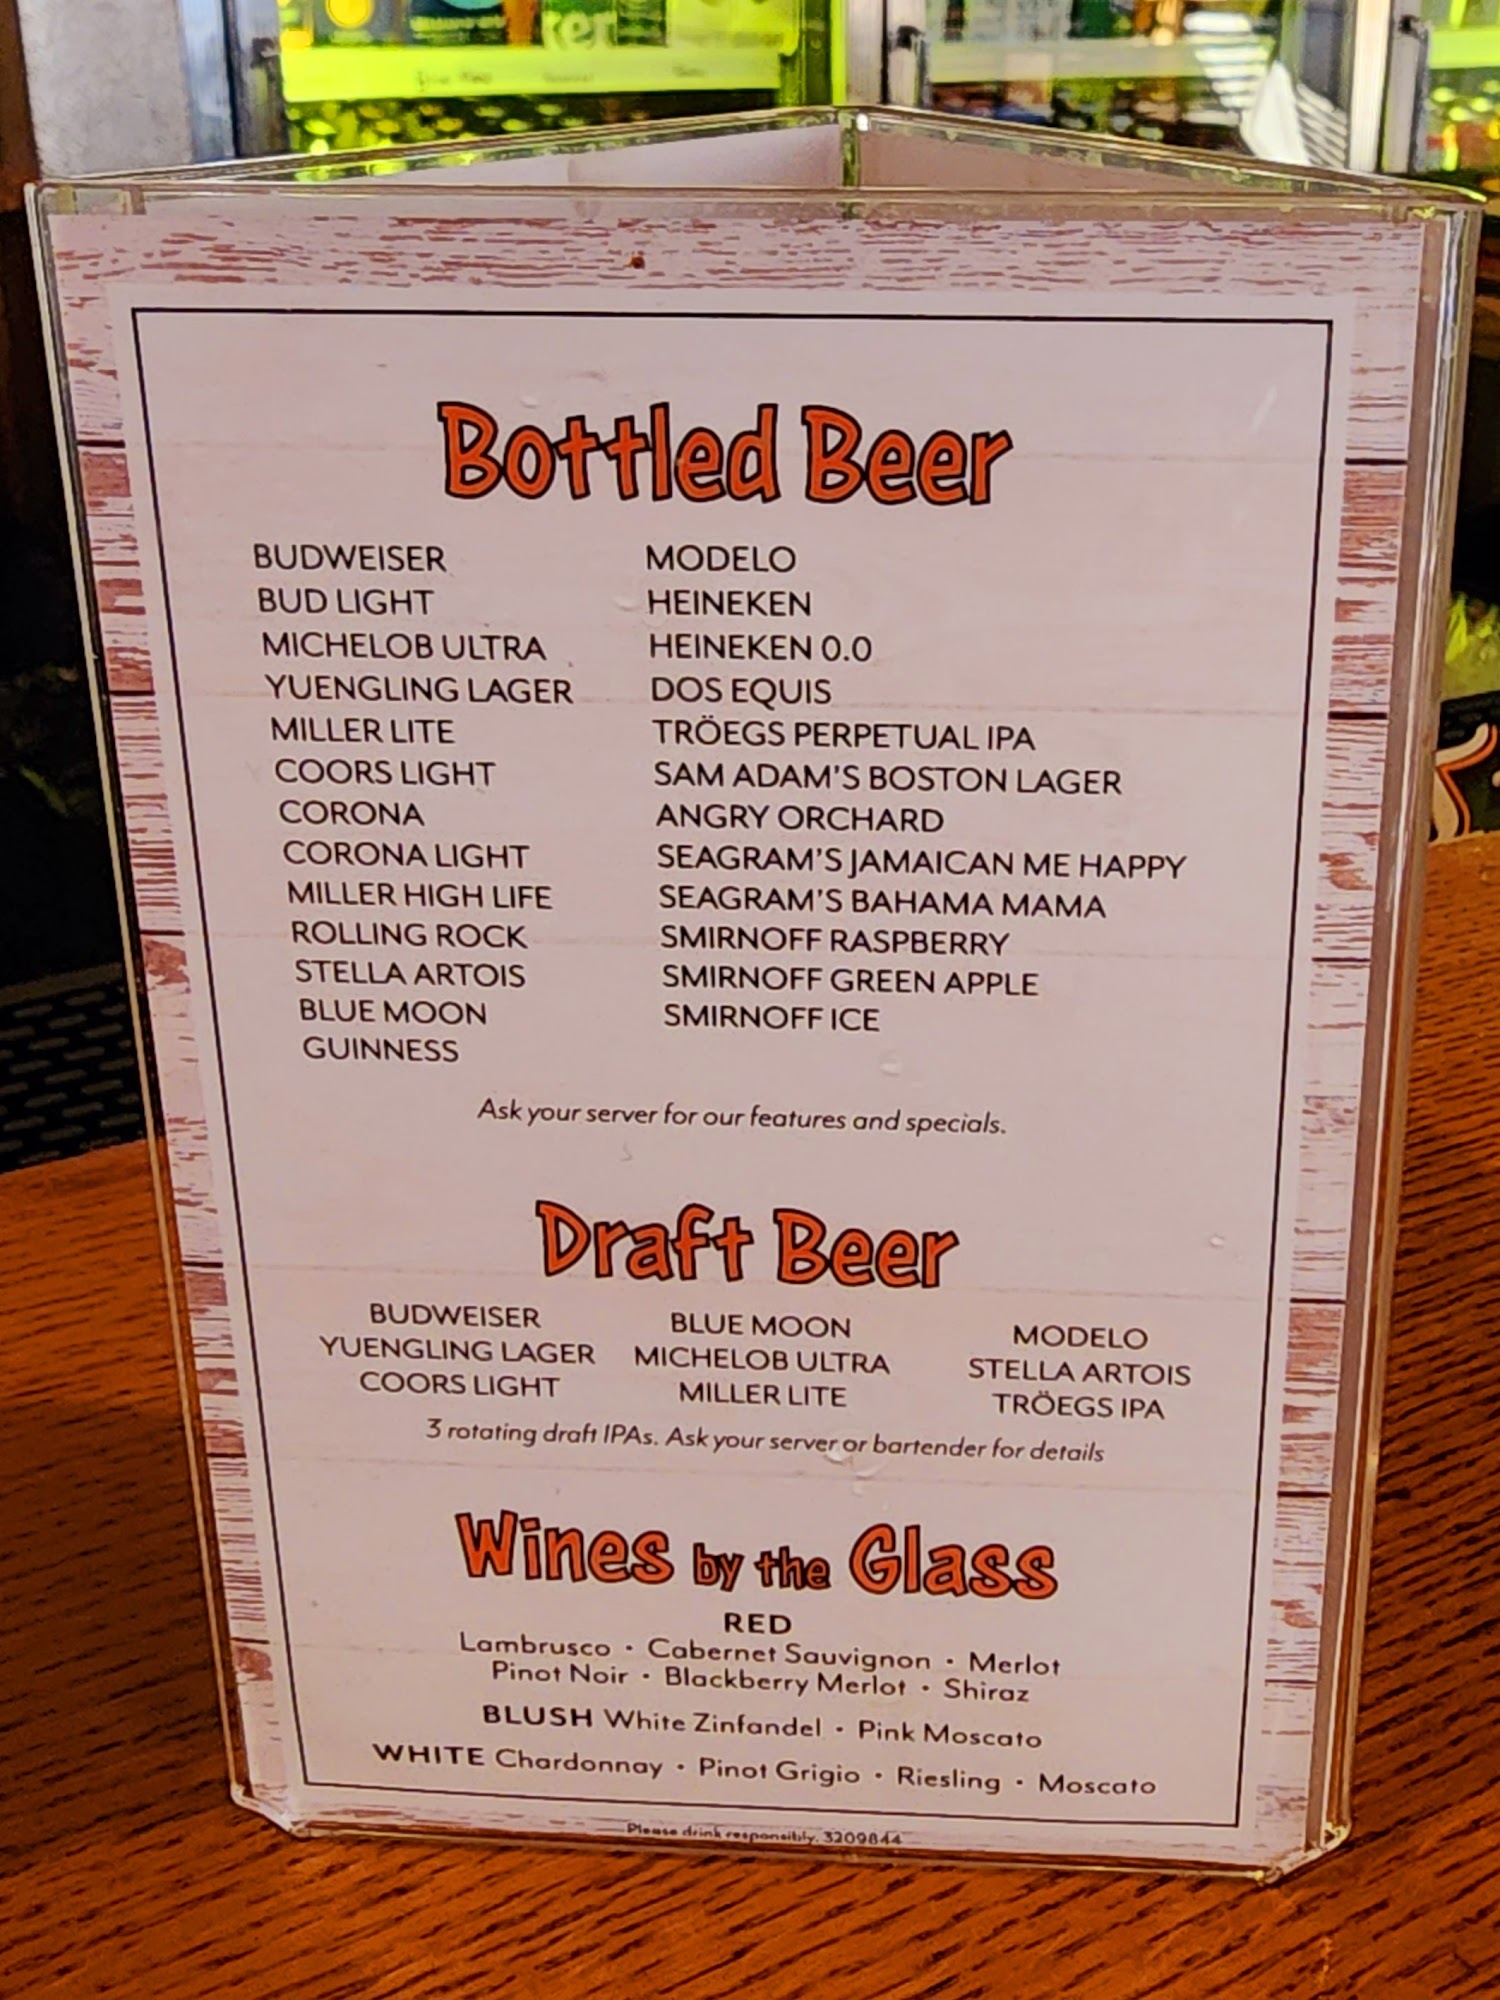 Bottled Beer
BUDWEISER
BUD LIGHT
MICHELOB ULTRA
YUENGLING LAGER
MILLER LITE
COORS LIGHT
CORONA
CORONA LIGHT
MILLER HIGH LIFE
ROLLING ROCK
STELLA ARTOIS
BLUE MOON
GUINNESS
MODELO
HEINEKEN
HEINEKEN 0.0
DOS EQUIS
TRÖEGS PERPETUAL IPA
SAM ADAM'S BOSTON LAGER
ANGRY ORCHARD
SEAGRAM'S JAMAICAN ME HAPPY
SEAGRAM'S BAHAMA MAMA
SMIRNOFF RASPBERRY
SMIRNOFF GREEN APPLE
SMIRNOFF ICE
Ask your server for our features and specials.
Draft Beer
BUDWEISER
YUENGLING LAGER
COORS LIGHT
BLUE MOON
MICHELOB ULTRA
MILLER LITE
MODELO
STELLA ARTOIS
TRÖEGS IPA
3 rotating draft IPAs. Ask your server or bartender for details
Wines by the Glass
RED
Lambrusco • Cabernet Sauvignon • Merlot
Pinot Noir • Blackberry Merlot • Shiraz
BLUSH White Zinfandel • Pink Moscato
WHITE Chardonnay • Pinot Grigio • Riesling • Moscato
Please drink responsibly. 3209844